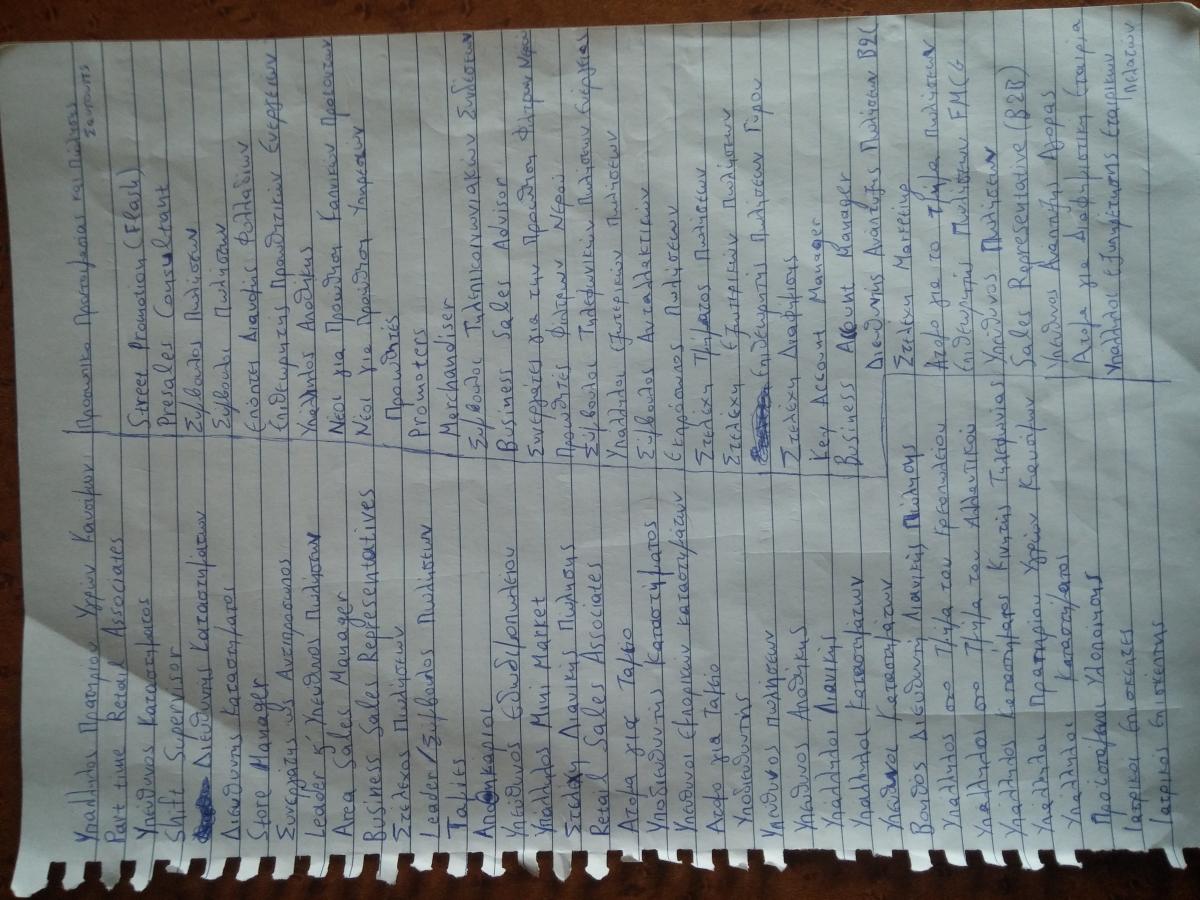 Υπαλληλος Πρατηριου Υγρων Καυσιμων
Part time Retail Associates
Υπευθυνος Καταστηματος
Shift Supervisor
Διευθυντης Καταστηματων
Διευθυντη καταστηματος
Store Manager
Συνεργάτη ως Αντιπροσωπος
Leader & Υπευθυνος Πωλησεων
Area Sales Manager
Business Sales Representatives
Στελεχος Πωλησεων
Leader/Συμβουλος Πωλησεων
Ταμιες
Αποθηκαριοι
Υπευθυνος Ειδων
Υπαλληλος Mini Market
Στελεχη Λιανικης Πωλησης
Retail Sales Associates
Ατομα για Ταμειο
Υποδιευθυντης Καταστηματος
Υπευθυνοι Εμπορικων καταστηματων
Ατομο για Ταμειο
Υποδιευθυντης
Υπευθυνος πωλησεων
Υπευθυνο Αποθηκης
Υπαλληλοι Λιανικης
Υπαλληλοι Καταστηματων
Υπευθυνοι Καταστηματων
Βοηθος Διευθυντη Λιανικης Πωλησης
Υπαλληλος στο Τμημα του κρεοπωλειου
Υπαλληλος στο Τμημα του Αλλαντικου
Υπαλληλο καταστηματος Κινητης Τηλεφωνιας
Υπαλληλοι Πρατηριου Υγρων Καυσιμων
Υπαλληλοι Καταστηματος
Προϊσταμενοι Υλοποιησης
Ιατρικοι επισκεπτες
Ιατρικος επισκεπτης
Προσωπικο Προετοιμασιας και Πωλησης
Σαντουιτς
Street Promotion (Flash)
Presales Consultant
Συμβουλος Πωλησεων
Συμβουλοι Πωλησεων
Εποπτες Διανομης Φυλλαδιων
Επιθεωρητης Προωθητικων Ενεργειων
Υπαλληλος Αποθηκης
Νεοι για Προωθηση Καπνικων Προϊοντων
Νεοι για Προωθηση Υπηρεσιων
Προωθητες
Promoters
Merchandiser
Συμβουλοι Τηλεπικοινωνιακων Συνδεσεων
Business Sales Advisor
Συνεργατες για την Προωθηση Φιλτρων Νερου
Προωθητες Φιλτρων Νερου
Συμβουλοι Τηλεφωνικων Πωλησεων Ενεργειας
Υπαλληλοι Εξωτερικων Πωλησεων
Συμβουλος Ανταλλακτικων
Εκπροσωπος Πωλησεων
Στελεχη Τμηματος Πωλησεων
Στελεχη Εξωτερικων Πωλησεων
Επιθεωρητης Πωλησεων Γυρου
Στελεχη Διαφημισης
Key Account Manager
Business Account Manager
Διευθυντης Αναπτυξης Πωλησεων B2C
Στελεχη Μαρκετινγ
Ατομο για το Τμημα Πωλησεων
Επιθεωρητη Πωλησεων FMCG
Υπευθυνος Πωλησεων
Sales Representative (B2B)
Υπευθυνο Αναπτυξη Αγορας
Ατομα για Διαφημιστικη Εταιρια
Υπαλληλοι εξυπηρετησης Εταιρικων
Πελατων